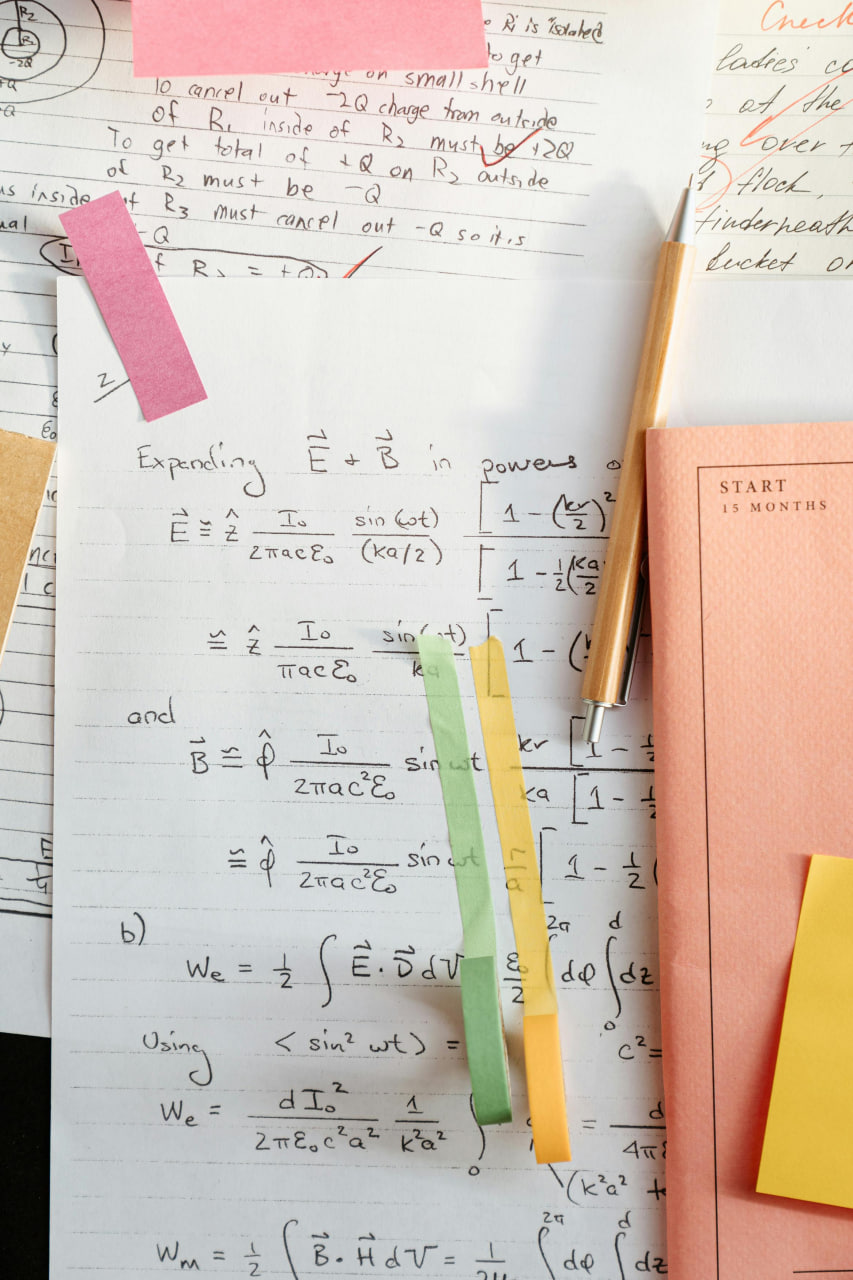 R₂
R₁
-2Q
Ri is isolated
to get
on small shell
To cancel out -2Q charge from outside
of R₁ inside of R₂ must be +2Q
To get total of +Q on R₂ outside
of R₂ must be -Q
inside of R₃ must cancel out -Q so it is
-Q
R = +Q
Check
ladies'
at the
over
flock,
bucket
START
15 MONTHS
2
Expanding E⃗ + B⃗ in powers
E⃗ ≅ ẑ I₀/(2πacε₀) sin(ωt)/(ka/2) [1 - (kr/2)²/[1 - ½(ka/2
≅ ẑ I₀/(πacε₀) sin(ωt)/ka [1 - (
and
B⃗ ≅ φ̂ I₀/(2πac²ε₀) sin ωt kr [1 - ½/ka [1 - ½
≅ φ̂ I₀/(2πac²ε₀) sin ωt [1 - ½ (
b)
We = ½ ∫ E⃗ · D⃗ dV ε₀/2 ∫^2π dφ ∫₀^d dz
Using < sin² ωt> = c² =
We = dI₀²/(2πε₀c²a²) 1/(k²a²) ∫₀ = d/4πε
(k²a² +
Wm = ½ ∫ B⃗ · H⃗ dV = 1/2μ ∫^2π dφ ∫^d dz